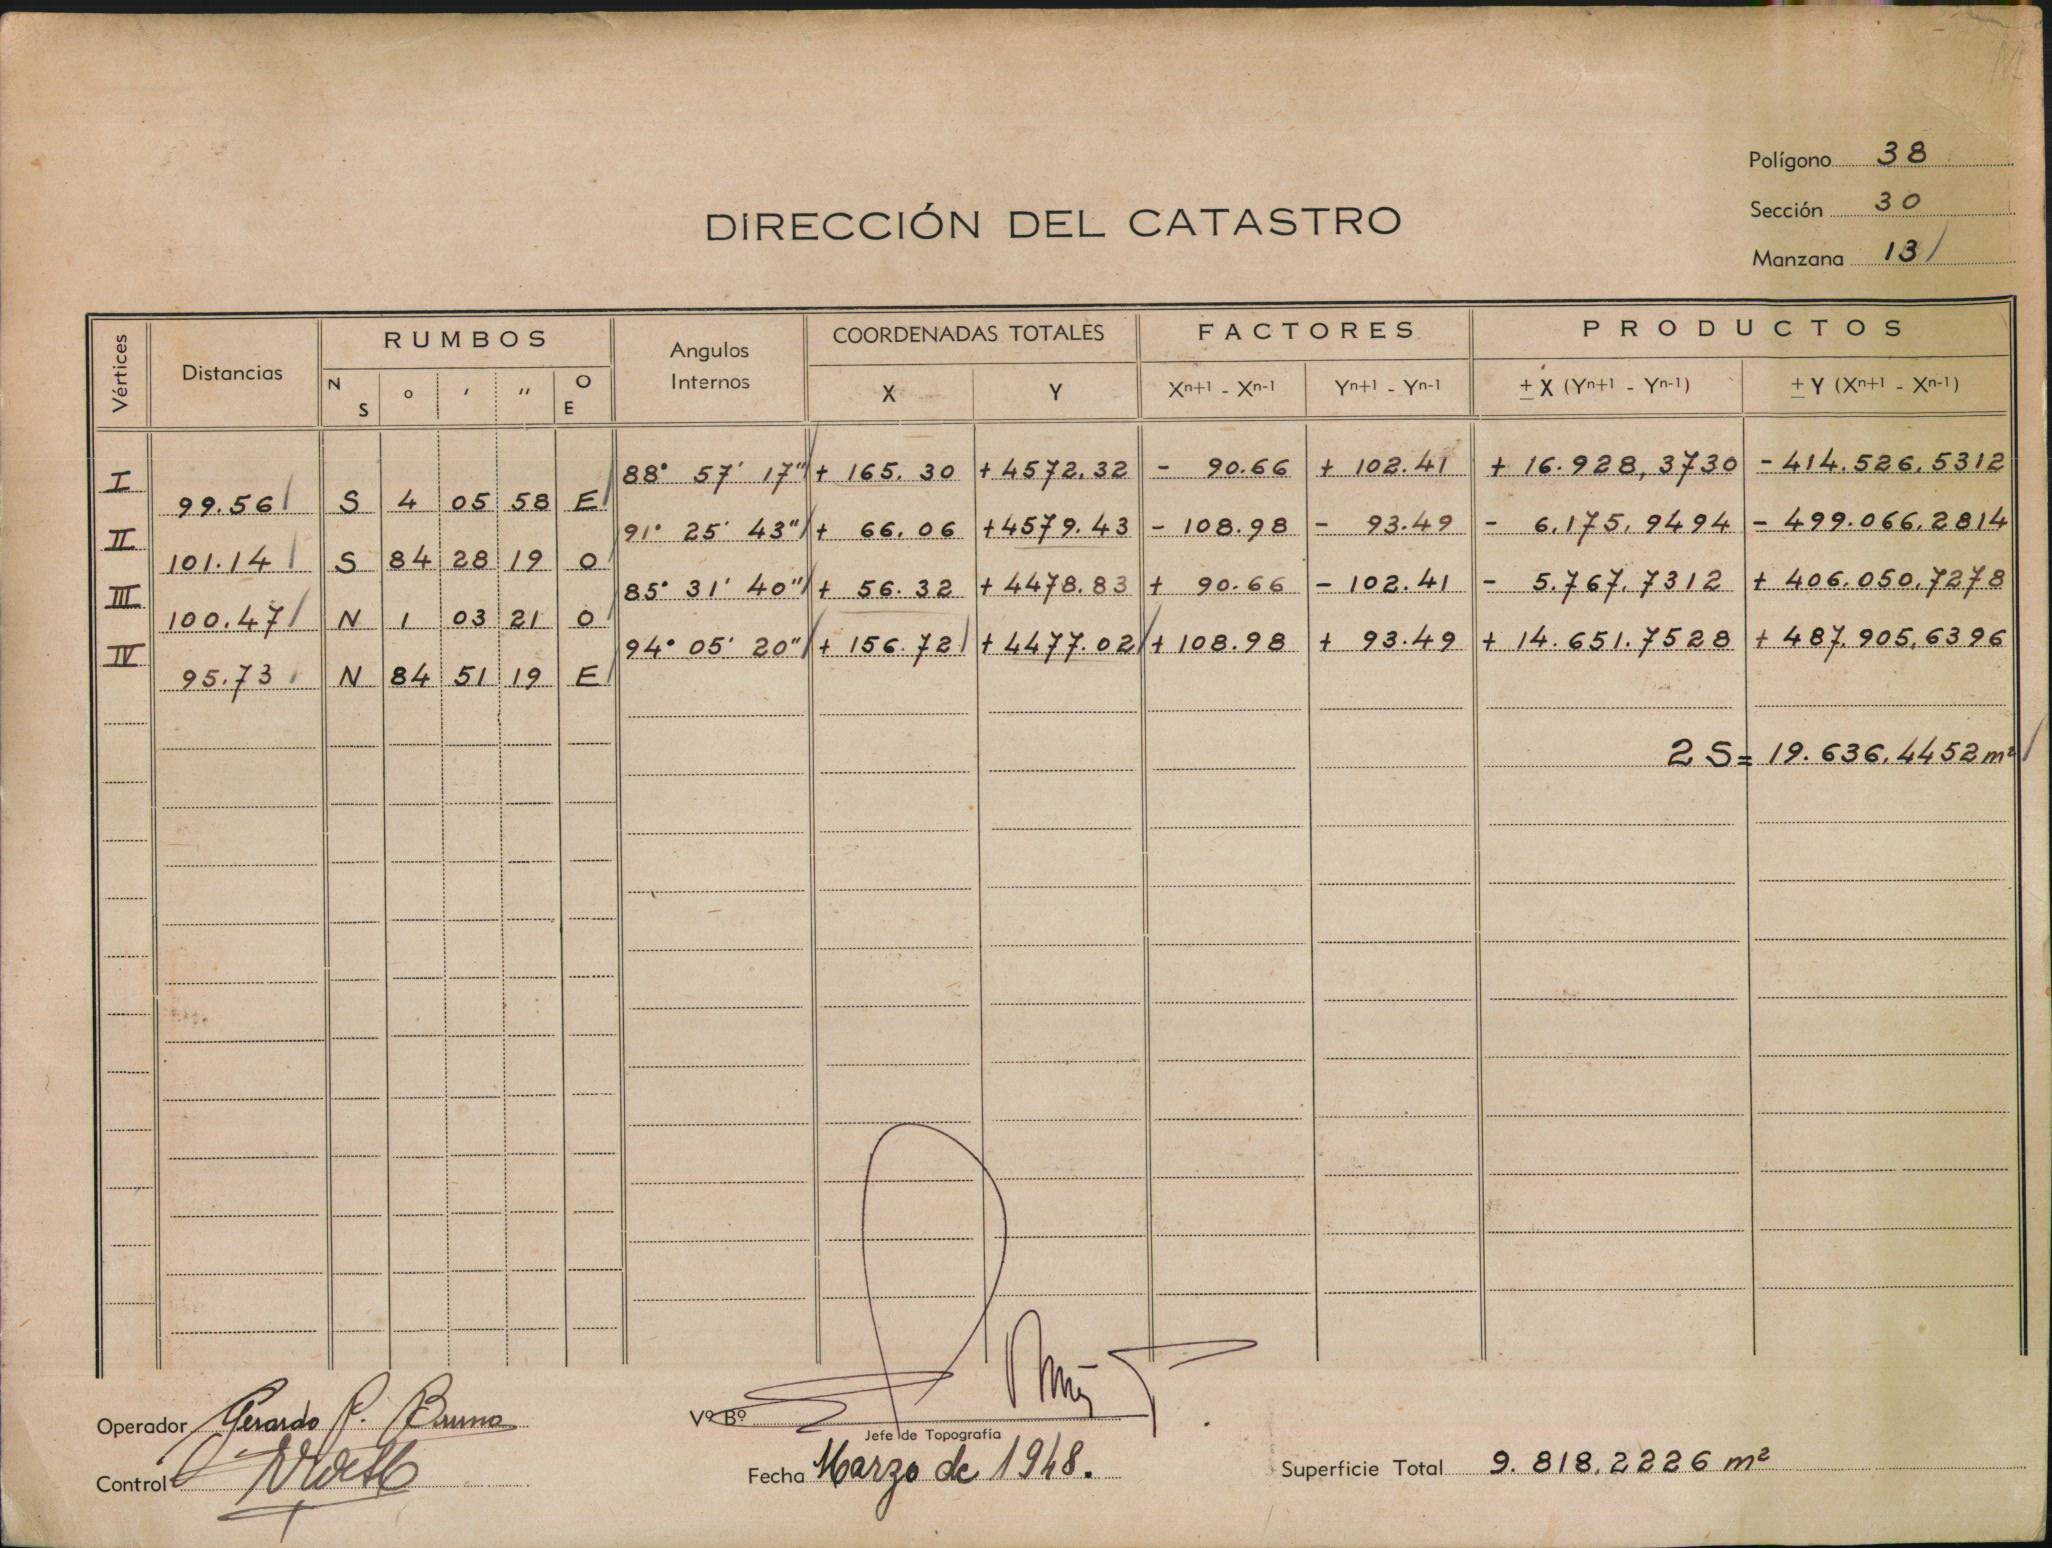 Polígono 38
DIRECCIÓN DEL CATASTRO
Sección 30
Manzana 13
Vértices Distancias RUMBOS Angulos Internos COORDENADAS TOTALES FACTORES PRODUCTOS
N S ° ' '' O E X Y Xn+1 - Xn-1 Yn+1 - Yn-1 ± X (Yn+1 - Yn-1) ± Y (Xn+1 - Xn-1)
I 88° 57' 17" + 165.30 + 4572.32 - 90.66 + 102.41 + 16.928,3730 - 414.526,5312
99.56 S 4 05 58 E
II 91° 25' 43" + 66.06 + 4579.43 - 108.98 - 93.49 - 6.175,9494 - 499.066,2814
101.14 S 84 28 19 O
III 85° 31' 40" + 56.32 + 4478.83 + 90.66 - 102.41 - 5.767,7312 + 406.050,7278
100.47 N 1 03 21 O
IV 94° 05' 20" + 156.72 + 4477.02 + 108.98 + 93.49 + 14.651.7528 + 487.905,6396
95.73 N 84 51 19 E
2 S = 19.636,4452 m²
Operador Gerardo P. Bruno
Vº Bº
Jefe de Topografía
Control
Fecha Marzo de 1948.
Superficie Total 9.818,2226 m²